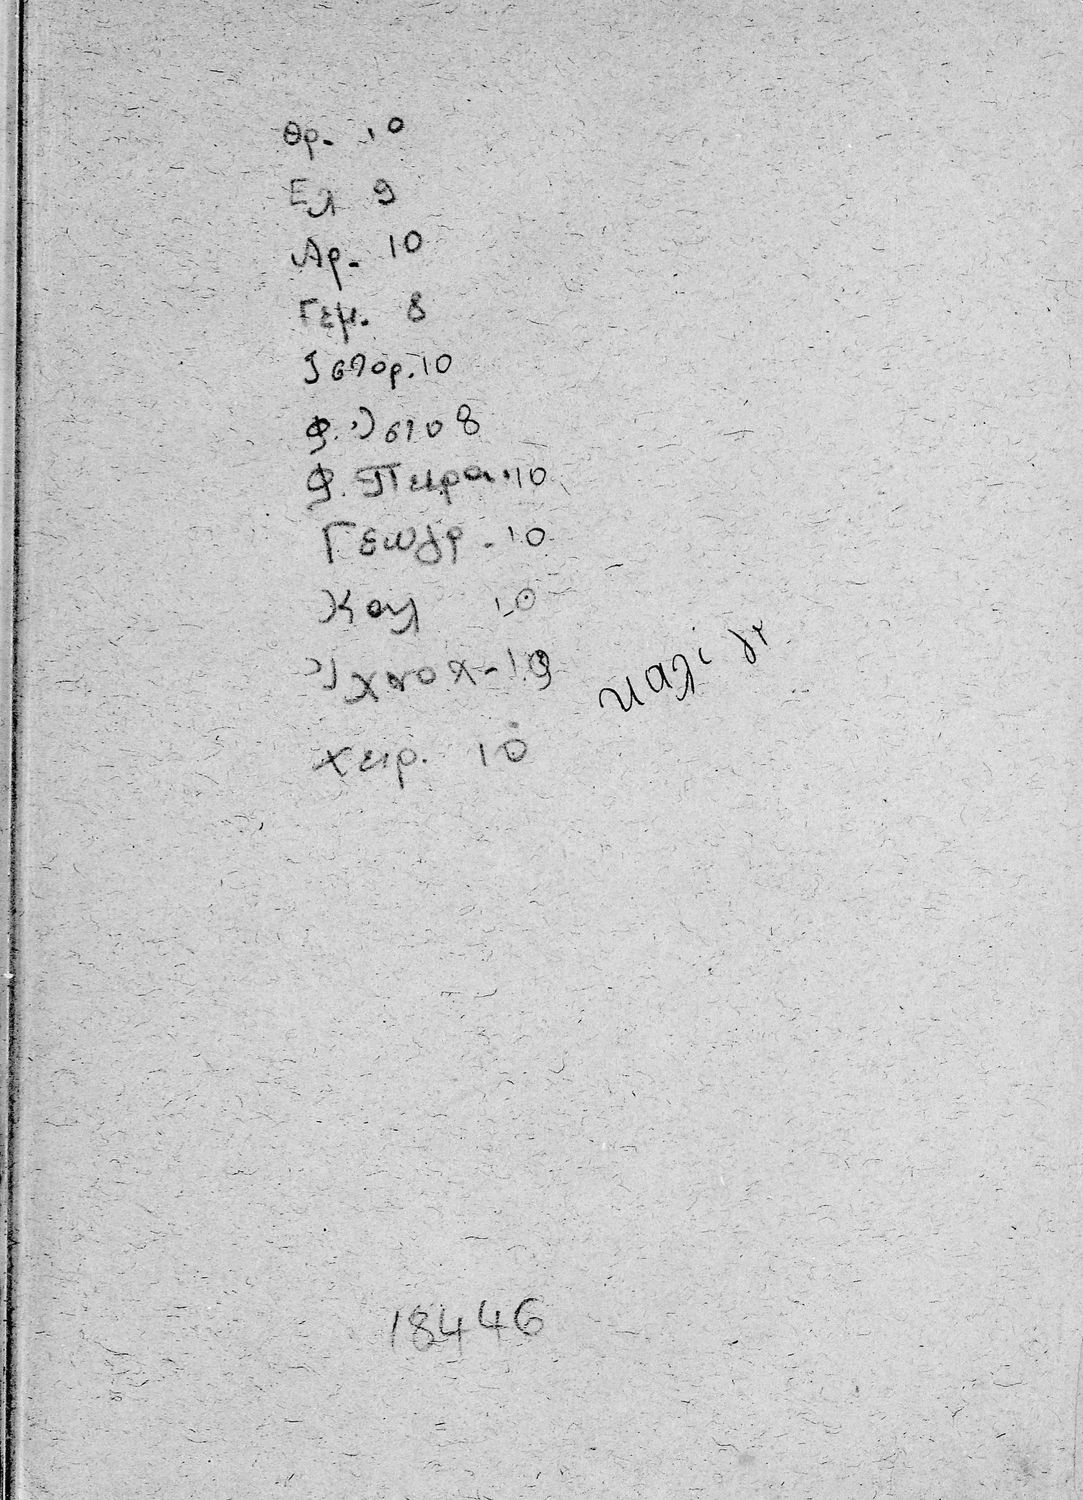 Θρ. 10
Ελ 9
Αρ. 10
Γεμ. 8
Ιστορ. 10
Φ. Ιστο 8
Φ. Πειρα. 10
Γεωγρ. 10
Καλ 10
Ιχνογ - 10
καλὶ
Χειρ. 10
18446